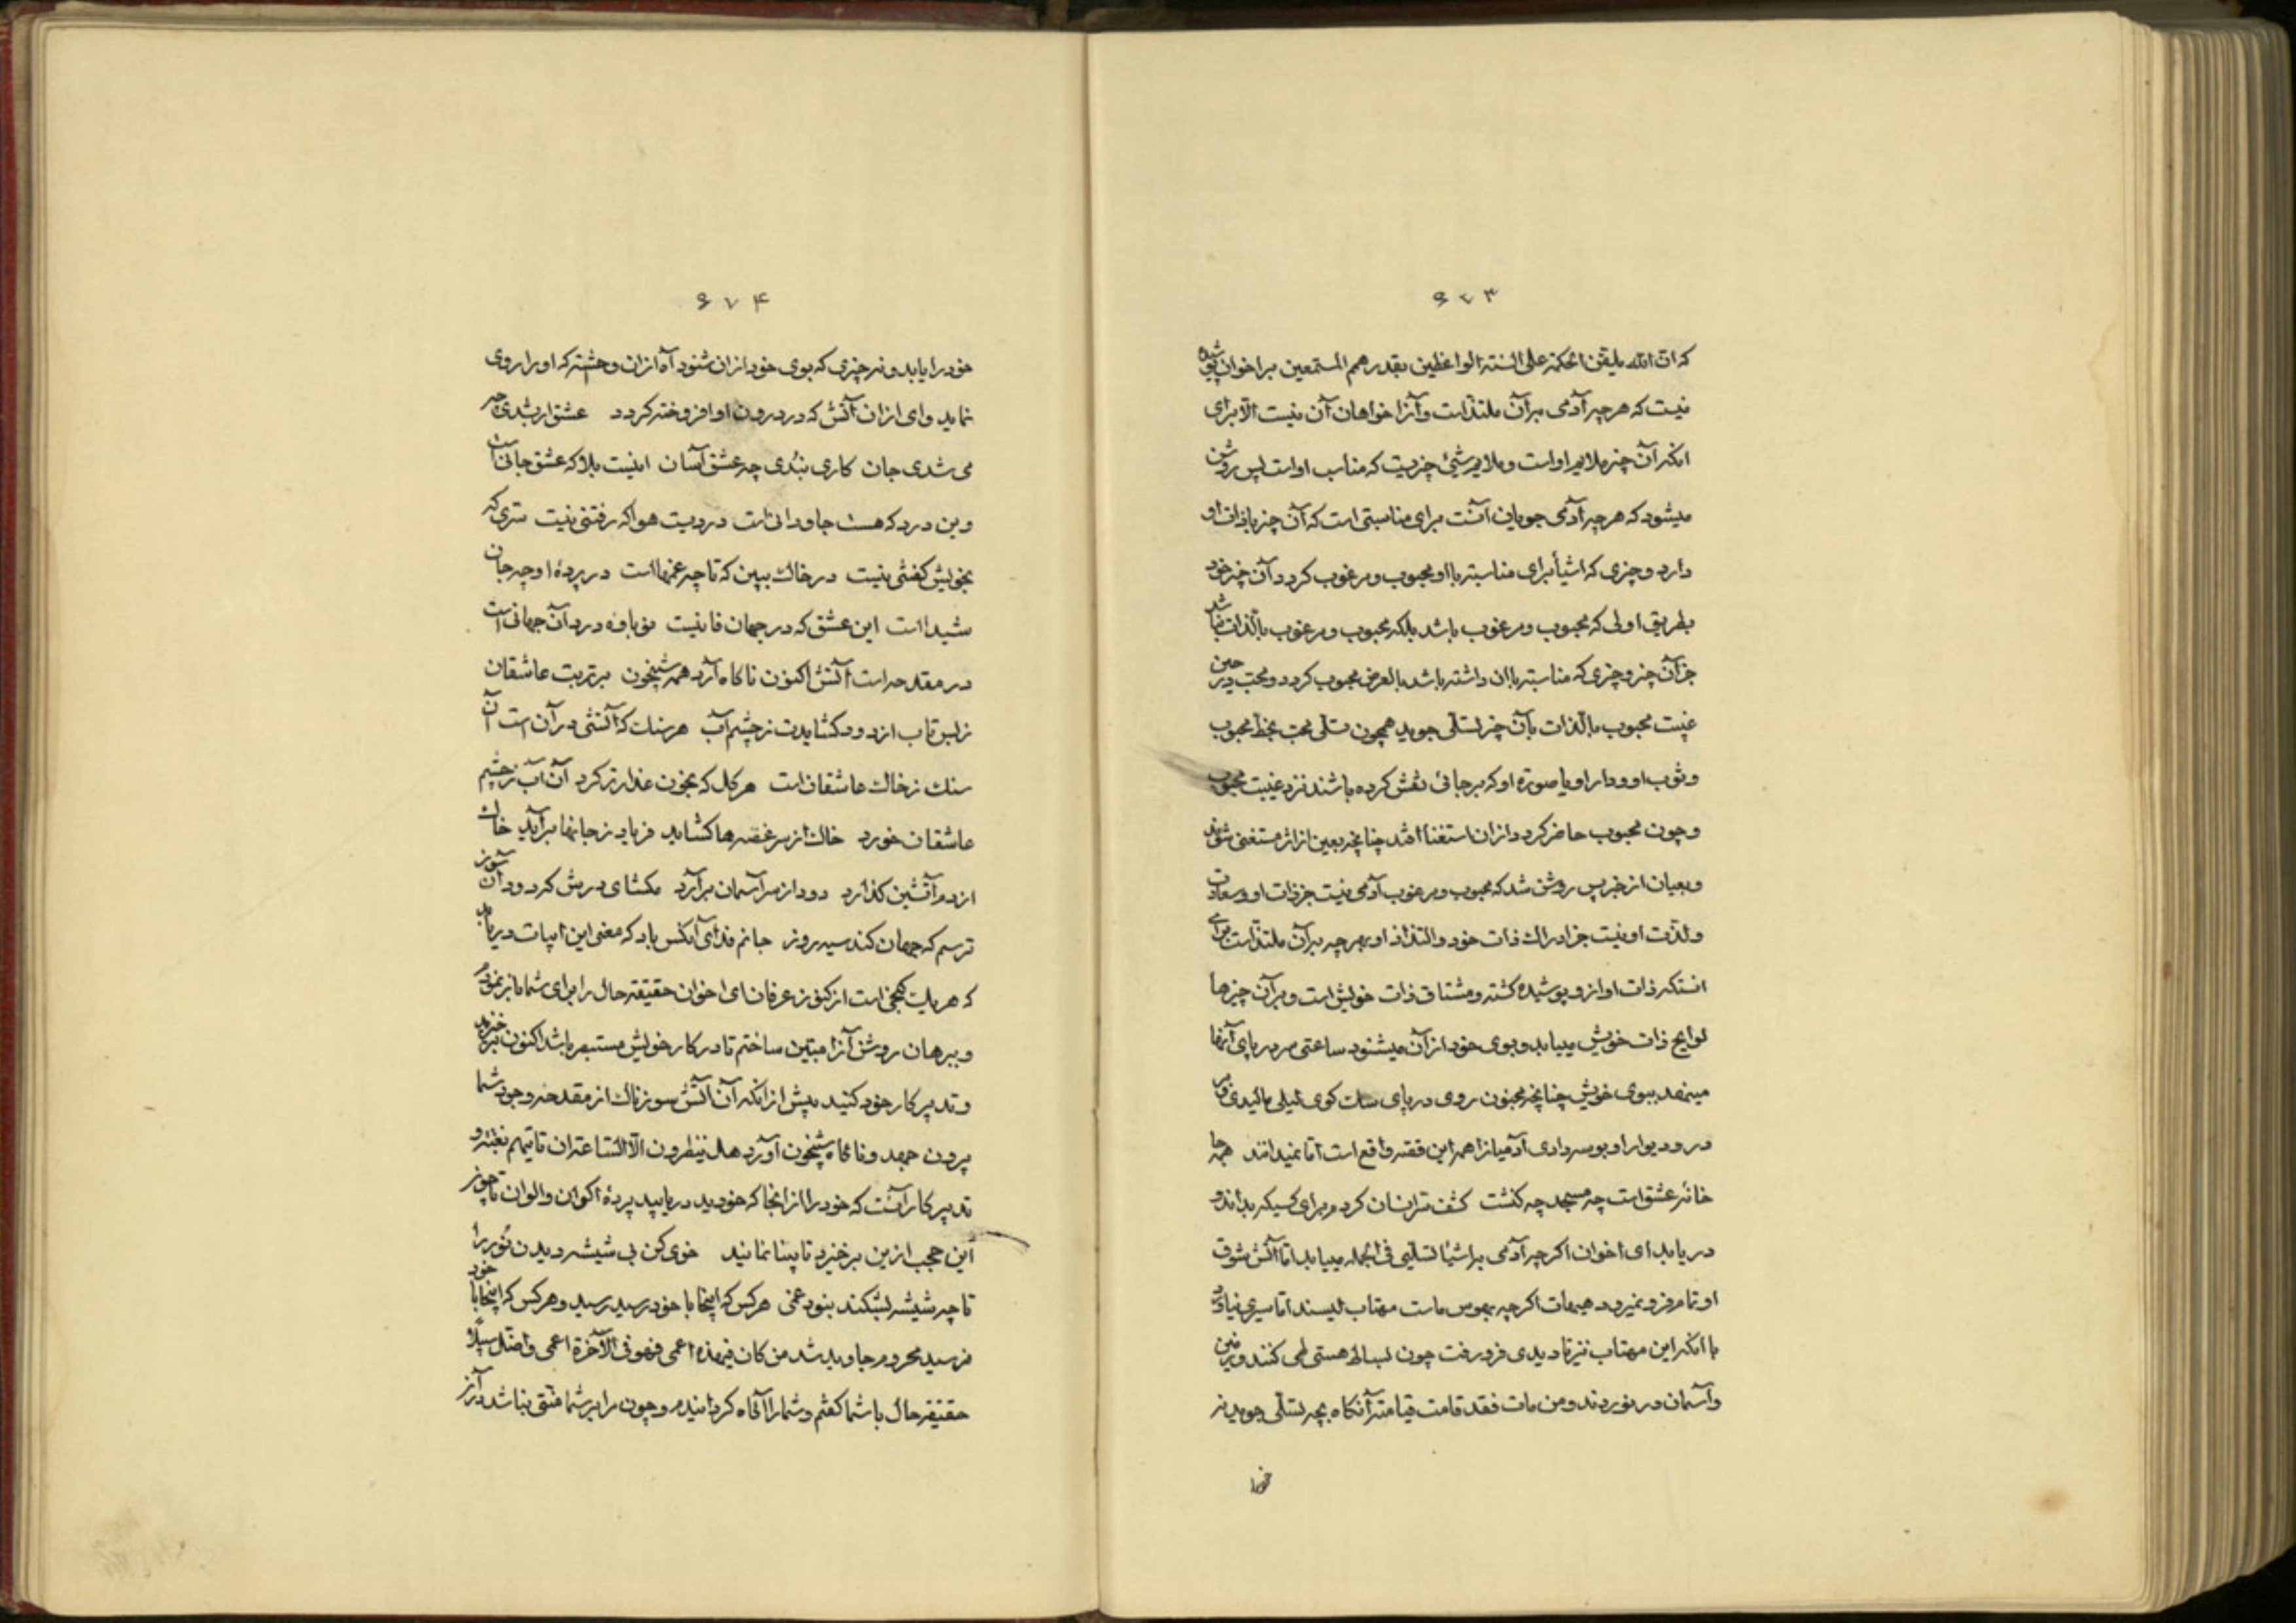 ۶۷۳
که ان الله یلقن الحکمة علی السنة الواعظین بقدر همم المستمعین بر اخوان پوشیده
نیست که هر چه آدمی بر آن ملتذ است و آنرا خواهان آن نیست الا برای
آنکه آن چیز ملایم او است و ملایم شیئ چیزیست که مناسب او است پس روشن
میشود که هر چه آدمی جویان آنست برای مناسبتی است که آن چیز با ذات او
دارد و چیزی که اشیأ برای مناسبته با او محبوب و مرغوب کردد آن چیز خود
بطریق اولی که محبوب و مرغوب باشد بلکه محبوب و مرغوب بالذات نباشد
جز آن چیز و چیزی که مناسبته باان داشته باشد بالعرض محبوب کردد و محب در حین
غیبت محبوب بالذات بآن چیز تسلی جوید همچون تسلی محب بخط محبوب
و ثوب او و دار او یا صورة او که بر جائی نقش کرده باشند نزد غیبت محبوب
و چون محبوب حاضر کردد ازان استغنا افتد چنانچه بعین از اثر مستغنی شوند
و بعیان از خبر پس روشن شد که محبوب و مرغوب آدمی نیست جز ذات او و سعادت
و لذت او نیست جز ادراک ذات خود و التذاذ او بهر چه بر آن ملتذ است برای
انستکه ذات او از و پوشیده کشته و مشتاق ذات خویش است و بر آن چیزها
لوایح ذات خویش مییابد و بوی خود از آن میشنود ساعتی سر در پای آنها
مینهد ببوی خویش چنانچه مجنون روی در پای سک کوی لیلی مالیدی و بر
در و دیوار او بوسه دادی آدمیانرا همه این قصه واقع است اما نمیدانند همه جا
خانه عشق است چه مسجد چه کنشت کشف سر انسان کردم برای کسیکه بداند و
دریابد ای اخوان اکر چه آدمی بر اشیا تسلیی فی الجمله مییابد اما آتش شوق
او تمام فرو نمیرود هیهات اکر چه بهوس ماست مهتاب لیسند اما سیری نیارد
با آنکه این مهتاب نیز تا دیدی فرو رفت چون بساط هستی طی کنند و زمین
و آسمان در نوردند و من مات فقد قامت قیامته آنکاه بچه تسلی جوید نه
خود
۶۷۴
خود را یابد و نه چیزی که بوی خود ازان شنود آه ازان وحشته که او را روی
نماید وای ازان آتش که در درون او افروخته کردد عشق ار بشدی چه
می شدی جان کاری بندی چه عشق آسان اینست بلا که عشق جانی است
وین درد که هست جاودانی است دردیست هوا که رفتنی نیست سری که
بخویش کفتنی نیست در خاک ببین که تا چه غمها است در پرده او چه جان
شیدا است این عشق که در جهان فانیست در آن جهانی است
در مقد حه است آتش اکنون ناکاه آرد همه شبیخون بر تربت عاشقان
زبس تاب از دود کشایدت ز چشم آب هر سنک که آتشی در آن است آن
سنک ز خاک عاشقان است هر کل که بخون عذار تر کرد آن آب ز چشم
عاشقان خورد خاک از سر غصه ها کشاید فریاد ز جانها برآید خاک
از دم آتشین کذارد دود از سر آسمان برآرد مکشای درش که دود آن سوز
ترسم که جهان کند سیه روز جانم فدای آنکس باد که معنی این ابیات دریابد
که هر یک کنجی است از کنوز عرفان ای اخوان حقیقته حال را برای شما باز نمودم
و ببرهان روشن آنرا مبین ساختم تا در کار خویش مستبصر باشد اکنون برخیزید
و تدبیر کار خود کنید پیش از آنکه آن آتش سوزناک از مقدحه وجود شما
بیرون جهد و ناکاه شبیخون آورد هل ینظرون الا الساعة ان تاتیهم بغتة و
تدبیر کار آنست که خود را از آنجا که خودید دریابید پردهٔ اکوان و الوان تا چون
این حجب ازین برخیزد نابینا نمانید خوی کن بی شیشه دیدن نور را
تا چه شیشه بشکند نبود عمی هر کس که اینجا با خود رسید رسید و هر کس که اینجا با خود
نرسید محروم جاوید شد من کان فیهذه اعمی فهو فی الآخرة اعمی و اضل سبیلا
حقیقة حال با شما کفتم و شما را آکاه کردانیدم و چون مرا بر شما منتی نباشد در آن